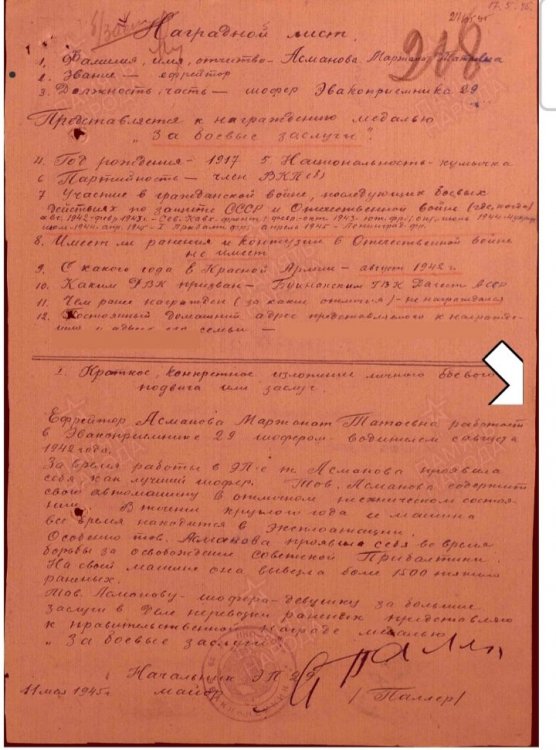 17.5.
Наградной лист.
218
1. Фамилия, имя, отчество - Асманова Маржанат Татаевна
2. Звание - ефрейтор
3. Должность, часть - шофер Эвакоприемника 29
Представляется к награждению медалью
"За боевые заслуги".
4. Год рождения - 1917 5. Национальность - кумычка
6 Партийность - член ВКП(б)
7 Участие в гражданской войне, последующих боевых
действиях по защите СССР и Отечественной войне (где, когда)
авг. 1942 - февр 1943г. - Сев. Кавк. фронт; февр - окт. 1943 - юж. фр.;
июл. 1944 - апр. 1945 - I Прибалт. фр; апрель 1945 - Ленинград. фр.
8. Имеет ли ранения и контузии в Отечественной войне
не имеет
9. С какого года в Красной Армии - август 1942 г.
10. Каким РВК призван - РВК Дагест. АССР
11. Чем ранее награжден (за какие отличия) - не награждался
12. Постоянный домашний адрес представляемого к награжде-
нию и адрес его семьи -
I. Краткое, конкретное изложение личного боевого
подвига или заслуг.
Ефрейтор Асманова Маржанат Татаевна работает
в Эвакоприемнике 29 шофером-водителем с августа
1942 года.
За время работы в ЭП-е т. Асманова проявила
себя как лучший шофер. Тов. Асманова содержит
свою автомашину в отличном техническом состоя-
нии. В течении круглого года её машина
все время находится в эксплоатации.
Особенно тов. Асманова проявила себя во время
борьбы за освобождение Советской Прибалтики.
На своей машине она вывезла более 1500 тяжело
раненых.
Тов. Асманову - шофера-девушку за большие
заслуги в деле перевозки раненых представляю
к правительственной награде медалью
"За боевые заслуги".
Начальник ЭП 29
майор
/Паллер/
11 мая 1945г.